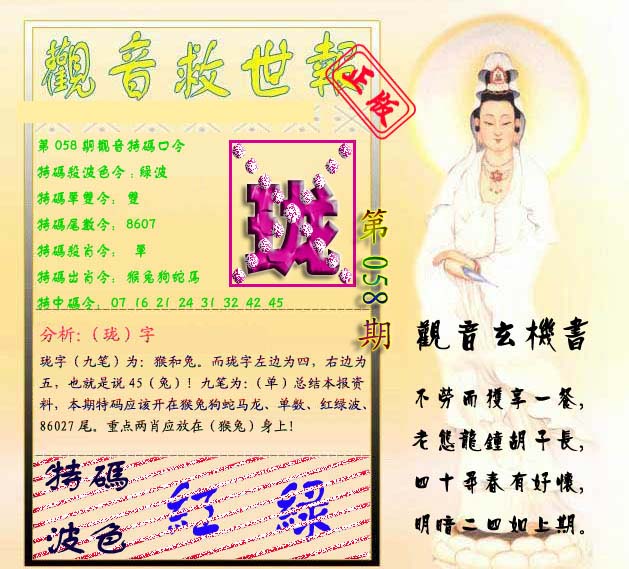 觀音救世報
正版
第058期觀音特碼口令
特碼殺波色令:綠波
特碼單雙令: 雙
特碼尾數令: 8607
特碼殺肖令: 單
特碼出肖令: 猴兔狗蛇馬
特中碼令: 07 16 21 24 31 32 42 45
珑
第058期
分析:(珑)字
珑字（九笔）为：猴和兔。而珑字左边为四，右边为
五，也就是说 45（兔）！九笔为：（单）总结本报资
料，本期特码应该开在猴兔狗蛇马龙、单数、红绿波、
86027 尾。重点两肖应放在（猴兔）身上！
特碼
波色
紅 綠
觀音玄機書
不勞而獲享一餐，
老態龍鐘胡子長，
四十尋春有好懷，
明暗二四如上期。